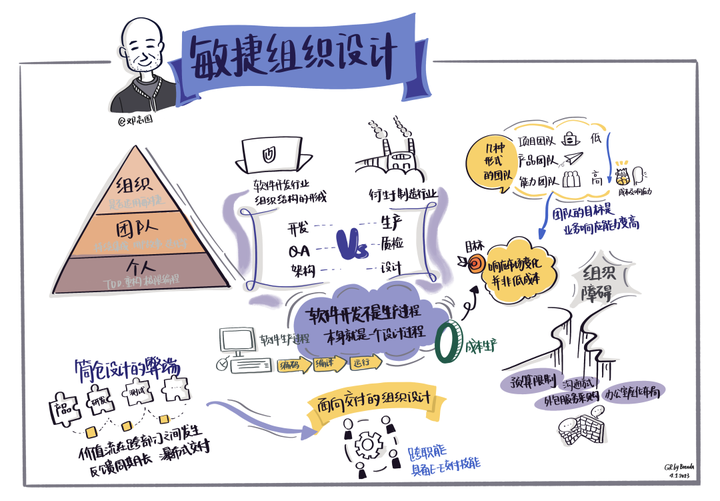 敏捷组织设计
@邓志国
组织
团队
个人
TDD 重构 极限编程
软件开发行业
组织结构的形成
衍生于制造行业
开发
生产
QA
Vs
质检
架构
设计
几种
形式
的团队
项目团队
低
产品团队
能力团队
高
团队的目标是
业务响应能力变高
目标
响应市场变化
并非低成本
软件开发不是生产过程
本身就是一个设计过程
软件生产过程
编码
编译
运行
成本生产
组织
障碍
预算限制
沟通或
外包服务采购
办公室座位布局
筒仓设计的弊端
产品
研发
测试
价值流在跨部门之间发生
反馈周期长 瀑布式交付
面向交付的组织设计
跨职能
具备E-E交付技能